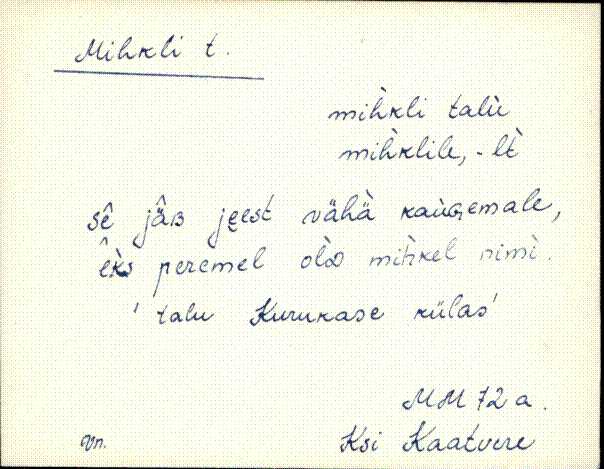 Mihkli t.
mìhkli talù
mìhklile, -lt̀
sê jâʙ jeest vähä̀ kaùɢemale,
êks peremel olʟ̀ mìhkel nimì.
' talu Kurukase külas'
MM 72 a.
Vn. Ksi Kaatvere